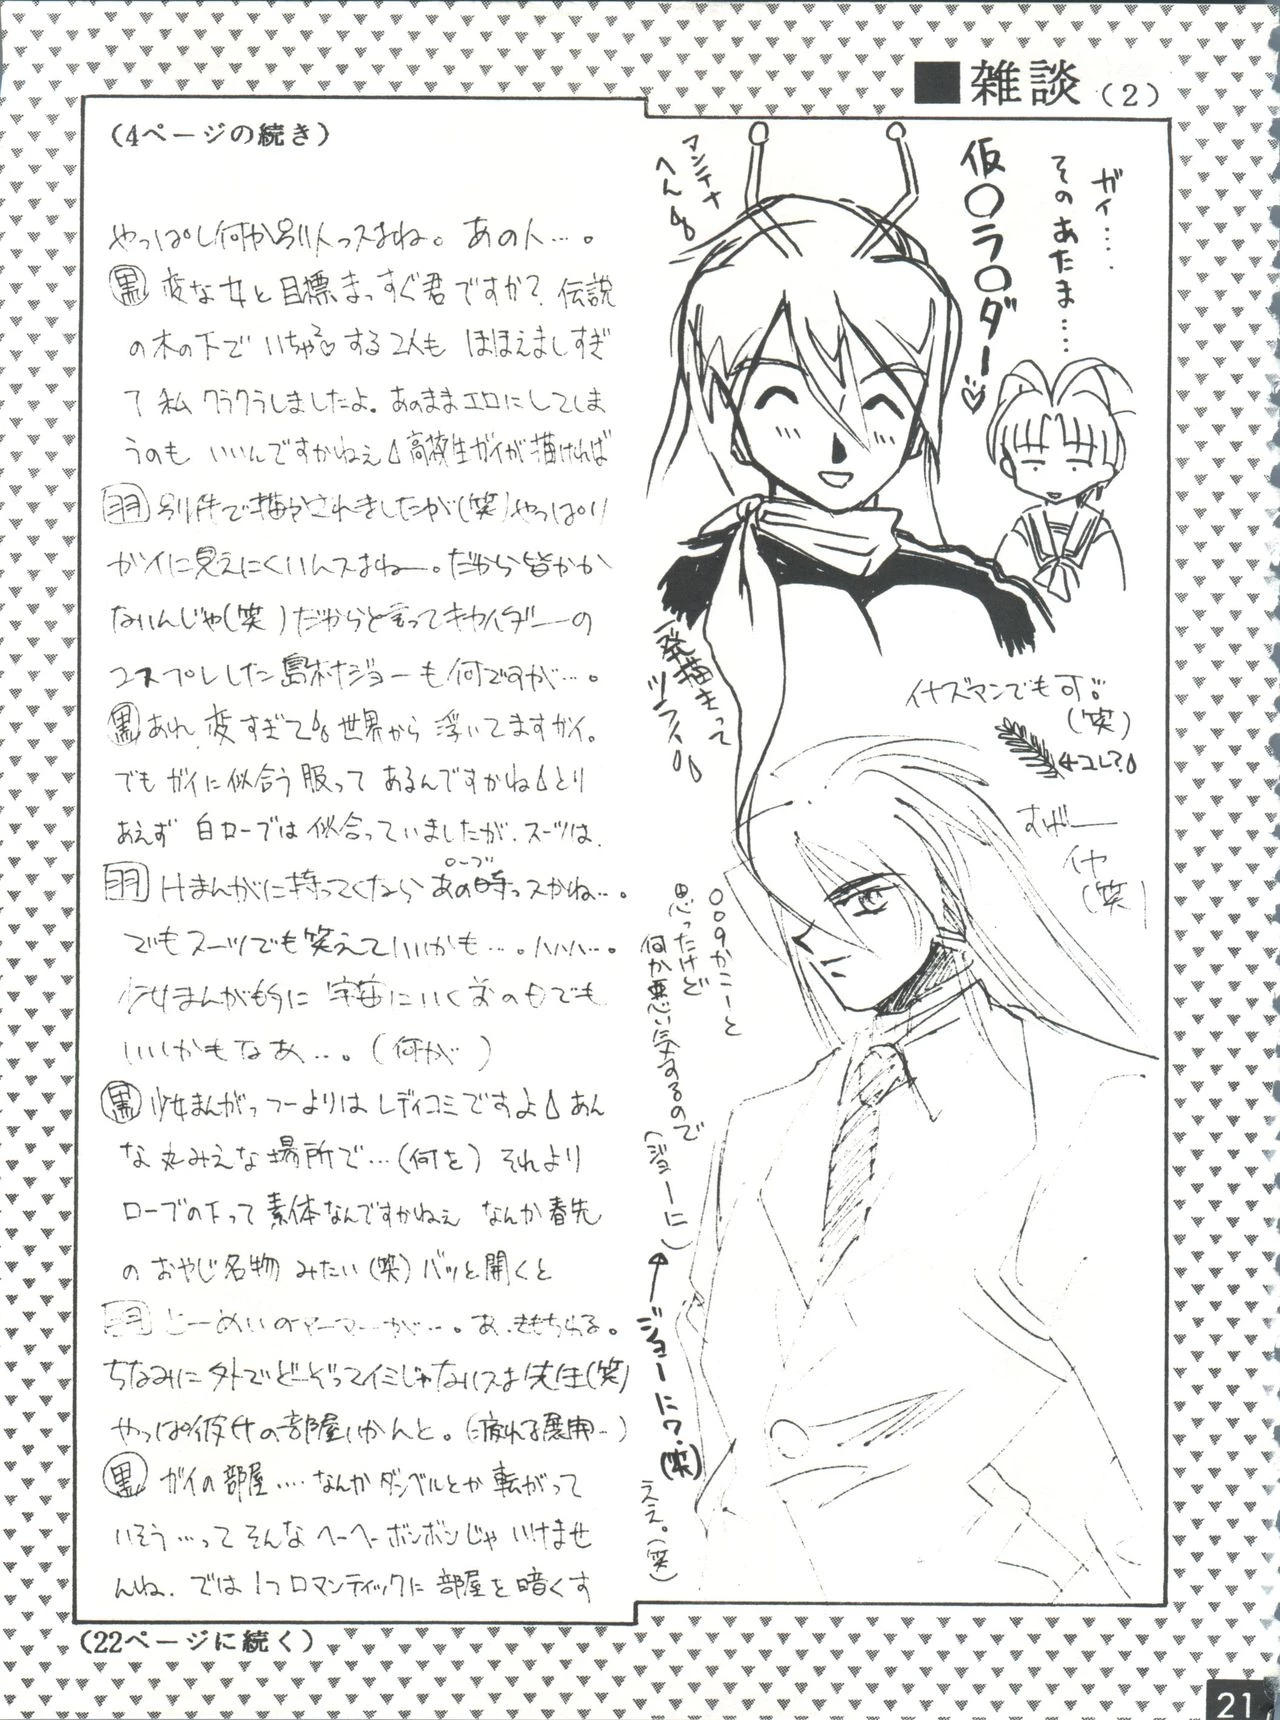 ■雑談（2）
（4ページの続き）
やっぱし何か別人っスよね。あの人…。
黒 変な女と目標まっすぐ君ですか？伝説
の木の下でいちゃ2♡する2人もほほえましすぎ
て私クラクラしましたよ。あのままエロにしてしま
うのもいいんですかねぇ 高校生ガイが描ければ
羽 別件で描かされましたが(笑)やっぱり
ガイに見えにくいんスよねー。だから皆かか
ないんじゃ(笑)だからと言ってキカイダーの
コスプレした島村ジョーも何ですが…。
黒 あれ、変すぎて 世界から浮いてますガイ。
でもガイに似合う服ってあるんですかね とり
あえず白ローブは似合っていましたが、スーツは、
羽 Hまんがに持ってくならあの時(ローブ)っスかね…。
でもスーツでも笑えていいかも…。ハハハ…。
少女まんが的に宇宙にいく前のでも
いいかもなあ…。(何が)
黒 少女まんがっつーよりはレディコミですよ あん
な丸みえな場所で…(何を)それより
ローブの下って素体なんですかねぇ なんか春先
のおやじ名物みたい(笑)バッと開くと
羽 とーめいのアーマーが…。あ、きもちわる。
ちなみに外でどーぞってイミじゃないスよ先生(笑)
やっぱ彼女の部屋いかんと。(疲れる展開…)
黒 ガイの部屋‥‥なんかダンベルとか転がって
いそう…ってそんなヘーヘーボンボンじゃいけませ
んね。では1つロマンティックに部屋を暗くす
（22ページに続く）
ガイ‥‥
そのあたま‥‥
仮〇ラ〇ダー♡
アンテナ
へん
一発描きって
ツライ
イナズマンでも可
(笑)
←コレ?
すげー
イヤ
(笑)
009かニーと
思ったけど
何か悪い気するので
(ジョーに)
←ジョーに?(笑)
ええ。(笑)
21